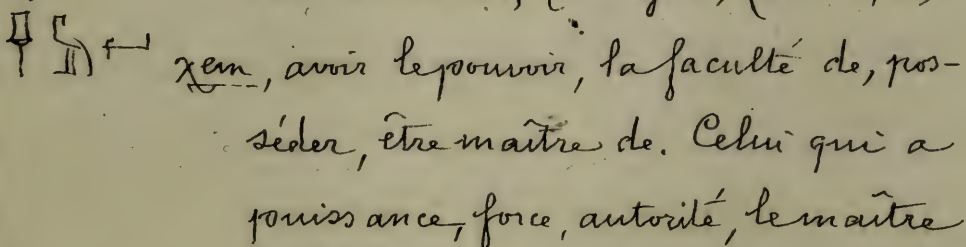 𓌂𓅓𓂝 χem, avoir le pouvoir, la faculté de, pos-
séder, être maître de. Celui qui a
puissance, force, autorité, le maître